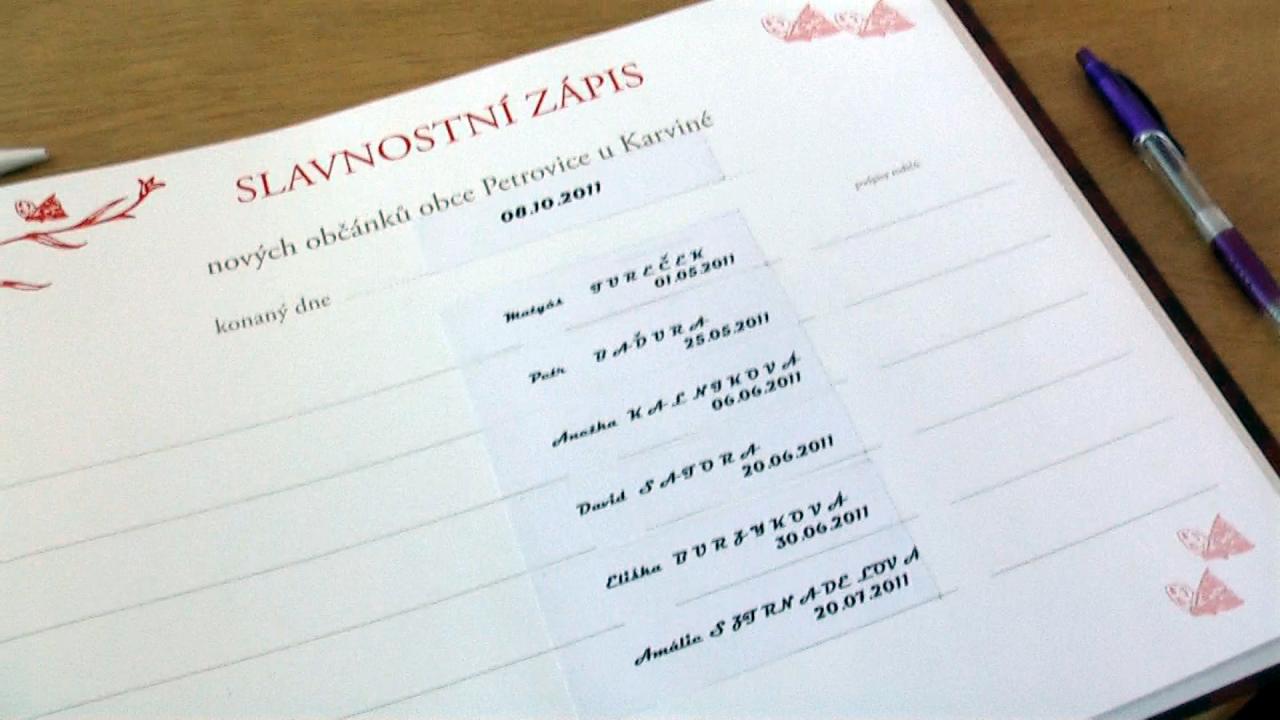 SLAVNOSTNÍ ZÁPIS
nových občánků obce Petrovice u Karviné
konaný dne 08.10.2011
podpisy rodičů:
Matyáš TUREČEK
01.05.2011
Petr BAĎURA
25.05.2011
Anežka KALNIKOVÁ
06.06.2011
David SATORA
20.06.2011
Eliška BURZYKOVÁ
30.06.2011
Amálie SZTRNADELOVÁ
20.07.2011